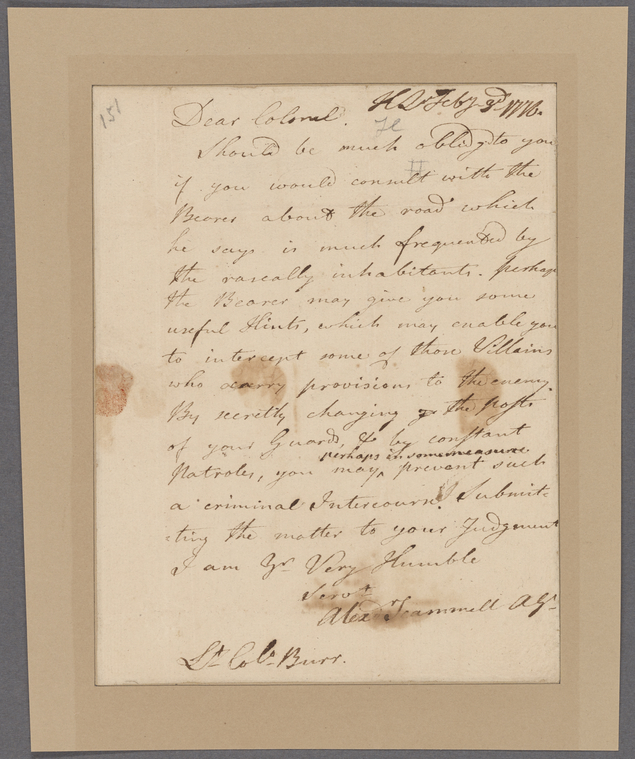 151
H Qr Feby 3d 1778.
Dear Colonel.
Should be much oblidg'd to you
if you would consult with the
Bearer about the road which
he says is much frequented by
the rascally inhabitants. perhaps
the Bearer may give you some
useful Hints, which may enable you
to intercept some of those Villains
who carry provisions to the enemy.
By secretly changing the posts
of your Guards, & by constant
perhaps in some measure
Patroles, you may prevent such
a criminal Intercourse. Submit-
ting the matter to your Judgment
I am Yr Very Humble
Servt
Alexdr Scammell A G
Lt Colo Burr.